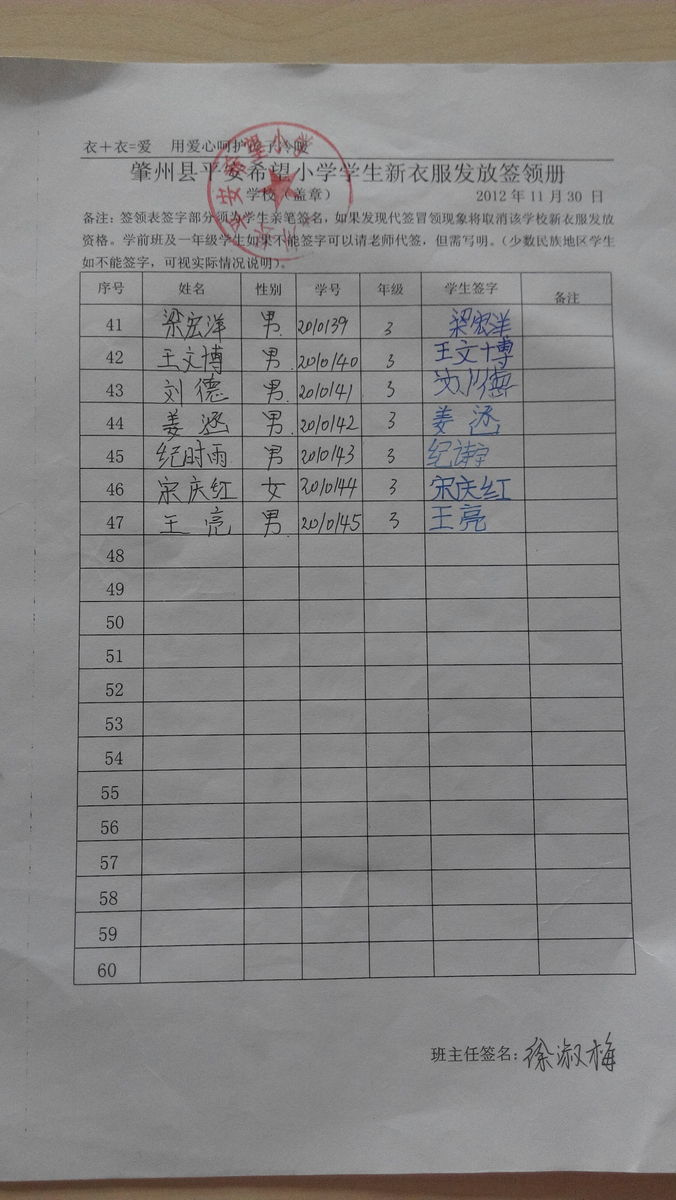 衣＋衣=爱 用爱心呵护孩子冷暖
肇州县平安希望小学学生新衣服发放签领册
学校（盖章） 2012 年 11 月 30 日
备注：签领表签字部分须为学生亲笔签名，如果发现代签冒领现象将取消该学校新衣服发放
资格。学前班及一年级学生如果不能签字可以请老师代签，但需写明。（少数民族地区学生
如不能签字，可视实际情况说明）。
序号 姓名 性别 学号 年级 学生签字 备注
41 梁宏洋 男 2010139 3 梁宏洋
42 王文博 男 2010140 3 王文博
43 刘德 男 2010141 3
44 姜丞 男 2010142 3 姜丞
45 纪时雨 男 2010143 3
46 宋庆红 女 2010144 3 宋庆红
47 王亮 男 2010145 3 王亮
48
49
50
51
52
53
54
55
56
57
58
59
60
班主任签名：徐淑梅